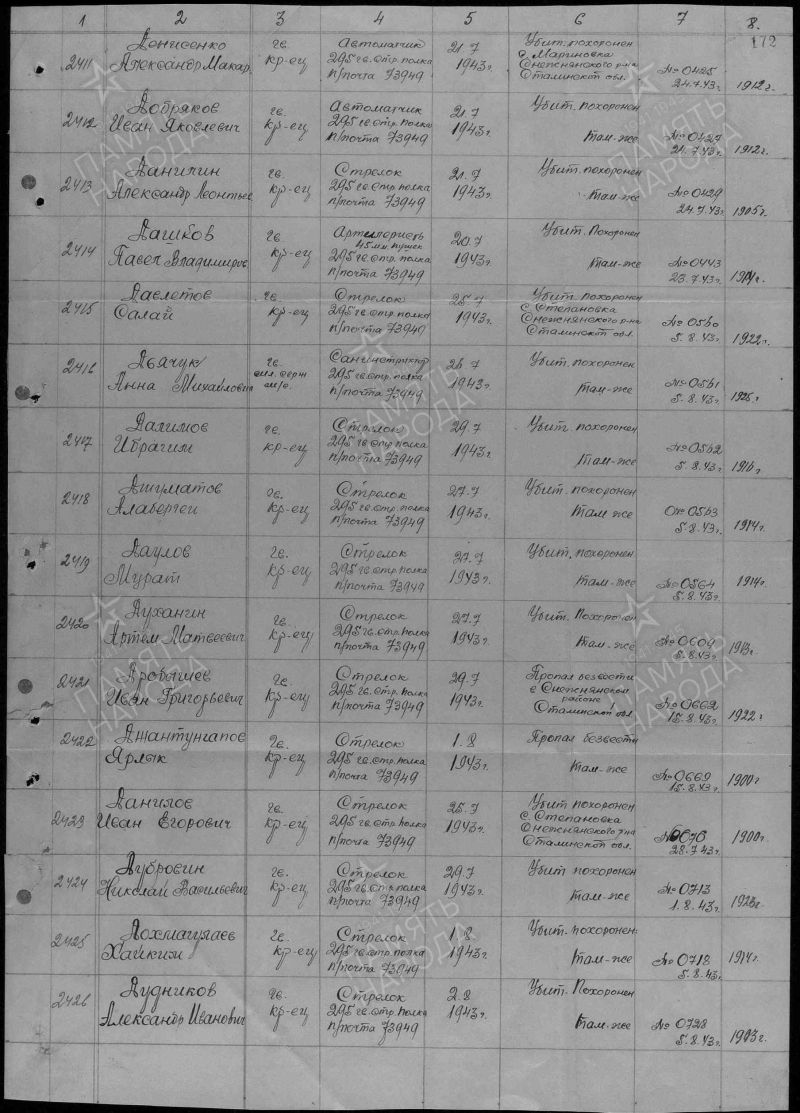 1 2 3 4 5 6 7 8.
172
2411 Денисенко Александр Макар. гв. кр-ец Автоматчик 295 гв. стр. полка п/почта 73949 21.7 1943г. Убит. похоронен с. Мариновка Снежнянского р-на Сталинской обл. № 0425 24.7.43г. 1912г.
2412 Добряков Иван Яковлевич гв. кр-ец Автоматчик 295 гв. стр. полка п/почта 73949 21.7 1943г. Убит. похоронен Там-же № 0427 21.7.43г. 1912г.
2413 Даничин Александр Леонтьев гв. кр-ец Стрелок 295 гв. стр. полка п/почта 73949 21.7 1943г. Убит. похоронен Там-же № 0429 24.7.43г. 1905г.
2414 Дашков Павел Владимиров гв. кр-ец Артиллерист 45 мм. пушек 295 гв. стр. полка п/почта 73949 20.7 1943г. Убит. Похоронен Там-же № 0443 23.7.43г.
2415 Давлетов Салай гв. кр-ец Стрелок 295 гв. стр. полка п/почта 73949 25.7 1943г. Убит. похоронен с. Степановка Снежнянского р-на Сталинской обл. № 0560 5.8.43г. 1922г.
2416 Дьячук Анна Михайловна гв. мл. серж. м/с. Санинструктор 295 гв. стр. полка п/почта 73949 26.7 1943г. Убит. похоронен Там-же № 0561 5.8.43г.
2417 Далимов Ибрагим гв. кр-ец Стрелок 295 гв. стр. полка п/почта 73949 29.7 1943г. Убит. похоронен Там-же № 0562 5.8.43г.
2418 Джуматов Алаберген гв. кр-ец Стрелок 295 гв. стр. полка п/почта 73949 27.7 1943г. Убит. похоронен Там же № 0563 5.8.43г. 1914г.
2419 Даулов Мурат гв. кр-ец Стрелок 295 гв. стр. полка п/почта 73949 27.7 1943г. Убит. похоронен Там-же № 0564 5.8.43г. 1914г.
2420 Духанин Артем Матвеевич гв. кр-ец Стрелок 295 гв. стр. полка п/почта 73949 27.7 1943г. Убит. Похоронен Там-же № 0609 5.8.43г. 1913г.
2421 Дробышев Иван Григорьевич гв. кр-ец Стрелок 295 гв. стр. полка п/почта 73949 29.7 1943г. Пропал безвести в Снежнянском районе Сталинской обл. № 0662 15.8.43г. 1922г.
2422 Джантунгапов Ярлык гв. кр-ец Стрелок 295 гв. стр. полка п/почта 73949 1.8 1943г. Пропал безвести Там-же № 0669 15.8.43г. 1900г.
2423 Данилов Иван Егорович гв. кр-ец Стрелок 295 гв. стр. полка п/почта 73949 25.7 1943г. Убит похоронен с. Степановка Снежнянского р-на Сталинской обл. 28.7.43г. 1900г.
2424 Дубровин Николай Васильевич гв. кр-ец Стрелок 295 гв. стр. полка п/почта 73949 29.7 1943г. Убит похоронен Там-же № 0713 1.8.43г.
2425 Дохмагулаев Хаиким гв. кр-ец Стрелок 295 гв. стр. полка п/почта 73949 1.8 1943г. Убит. похоронен Там-же № 0718 5.8.43г. 1914г.
2426 Дудников Александр Иванович гв. кр-ец Стрелок 295 гв. стр. полка п/почта 73949 2.8 1943г. Убит. Похоронен Там-же № 0728 5.8.43г. 1903г.
ПАМЯТЬ НАРОДА